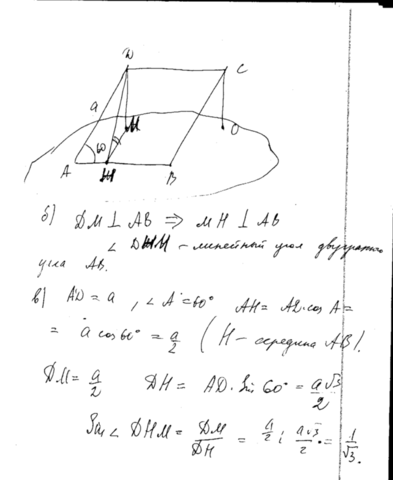 D
C
a
60
M
O
A
H
B
б) DM ⊥ AB ⇒ MH ⊥ AB
∠ DHM – линейный угол двугранного
угла AB.
в) AD = a, ∠A = 60° AH = AD·cos A =
= a cos 60° = a/2 (H – середина AB).
DM = a/2 DH = AD · Sin 60° = a√3/2
Sin ∠ DHM = DM/DH = a/2 : a√3/2 = 1/√3.